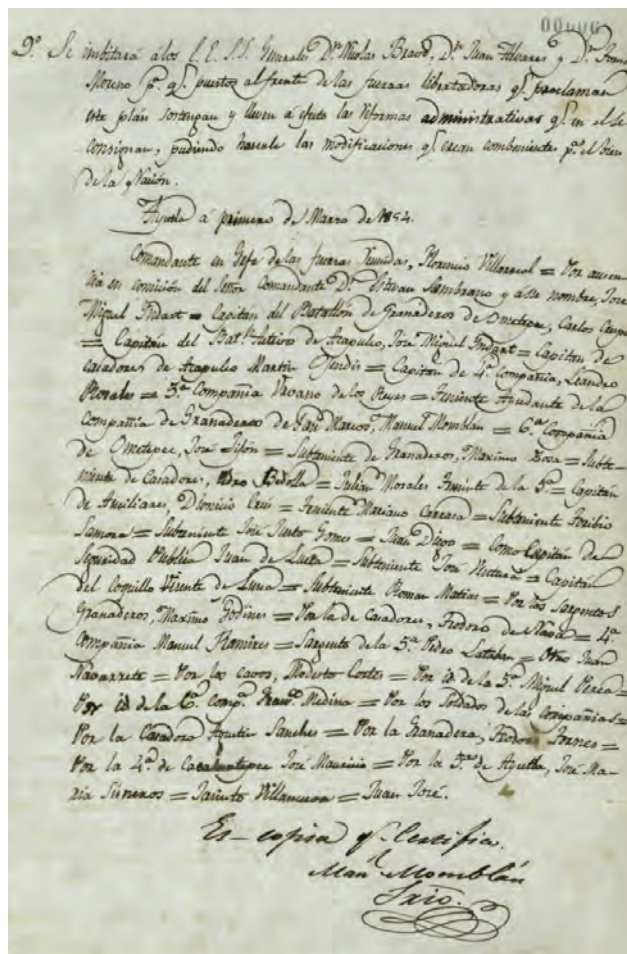 00006
9º Se imbitará á los E.E. S.S. Generales Dn Nicolas Bravo, Dn Juan Alvares y Dn Tomas
Moreno pª qe puestos al frente de las fuerzas libertadoras qe proclaman
este plán sostengan y lleven á efecto las reformas administrativas qe en el se
consignan, pudiendo hacerle las modificaciones qe crean combeniente pª el bien
de la Nacion.
Ayutla á primero de Marzo de 1854.
Comandante en Gefe de las fuerzas reunidas, Florencio Villareal = Por ausen-
cia en comición del Señor Comandante Dn Estevan Zambrano y á su nombre, José
Miguel Indart = Capitan del Batallón de Granaderos de Ometepec, Carlos
= Capitán del Batn Activo de Acapulco, José Miguel Indart = Capitan de
casadores de Acapulco Martin = Capitan de Compañia, Leandro
Rosales = 3ª Compañia Urvano de los Reyes = Teniente Ayudante de la
Compañia de Granaderos de San Marcos, Manuel Momblan = 6ª Compañia
de Ometepec, José Jijón = Subteniente de Granaderos, Maximo Sosa = Subte-
niente de Casadores, Pedro Bedolla = Julian Morales Teniente de la 5ª = Capitán
de Auxiliares, Dionicio Cruz = Teniente Mariano Carrasa = Subteniente Toribio
Zamora = Subteniente José Justo Gomes = Juan Diego = Como Capitán de
Seguridad Publica Juan de Luna = Subteniente José = Capitán
del Coquillo Vicente de Luna = Subteniente Roman Matias = Por los Sargentos
Granaderos, Maximo Godines = Por la de casadores, Teodoro de Nava = 4ª
Compañia Manuel Ramires = Sargento de la 5ª Pedro = Otro Juan
Navarrete = Por los cavos, Modesto Cortes = Por id de la 5ª Miguel Perea =
Por id de la 6ª compª Franco Medina = Por los Soldados de las compañias =
Por la Casadora Agustin Sanches = Por la Granadera,
Por la 4ª de José Mauricio = Por la 5ª de Ayutla, José Ma-
ria = Jacinto Villanueva = Juan José.
Es copia qe Certifica.
Manl Momblán
Srio.